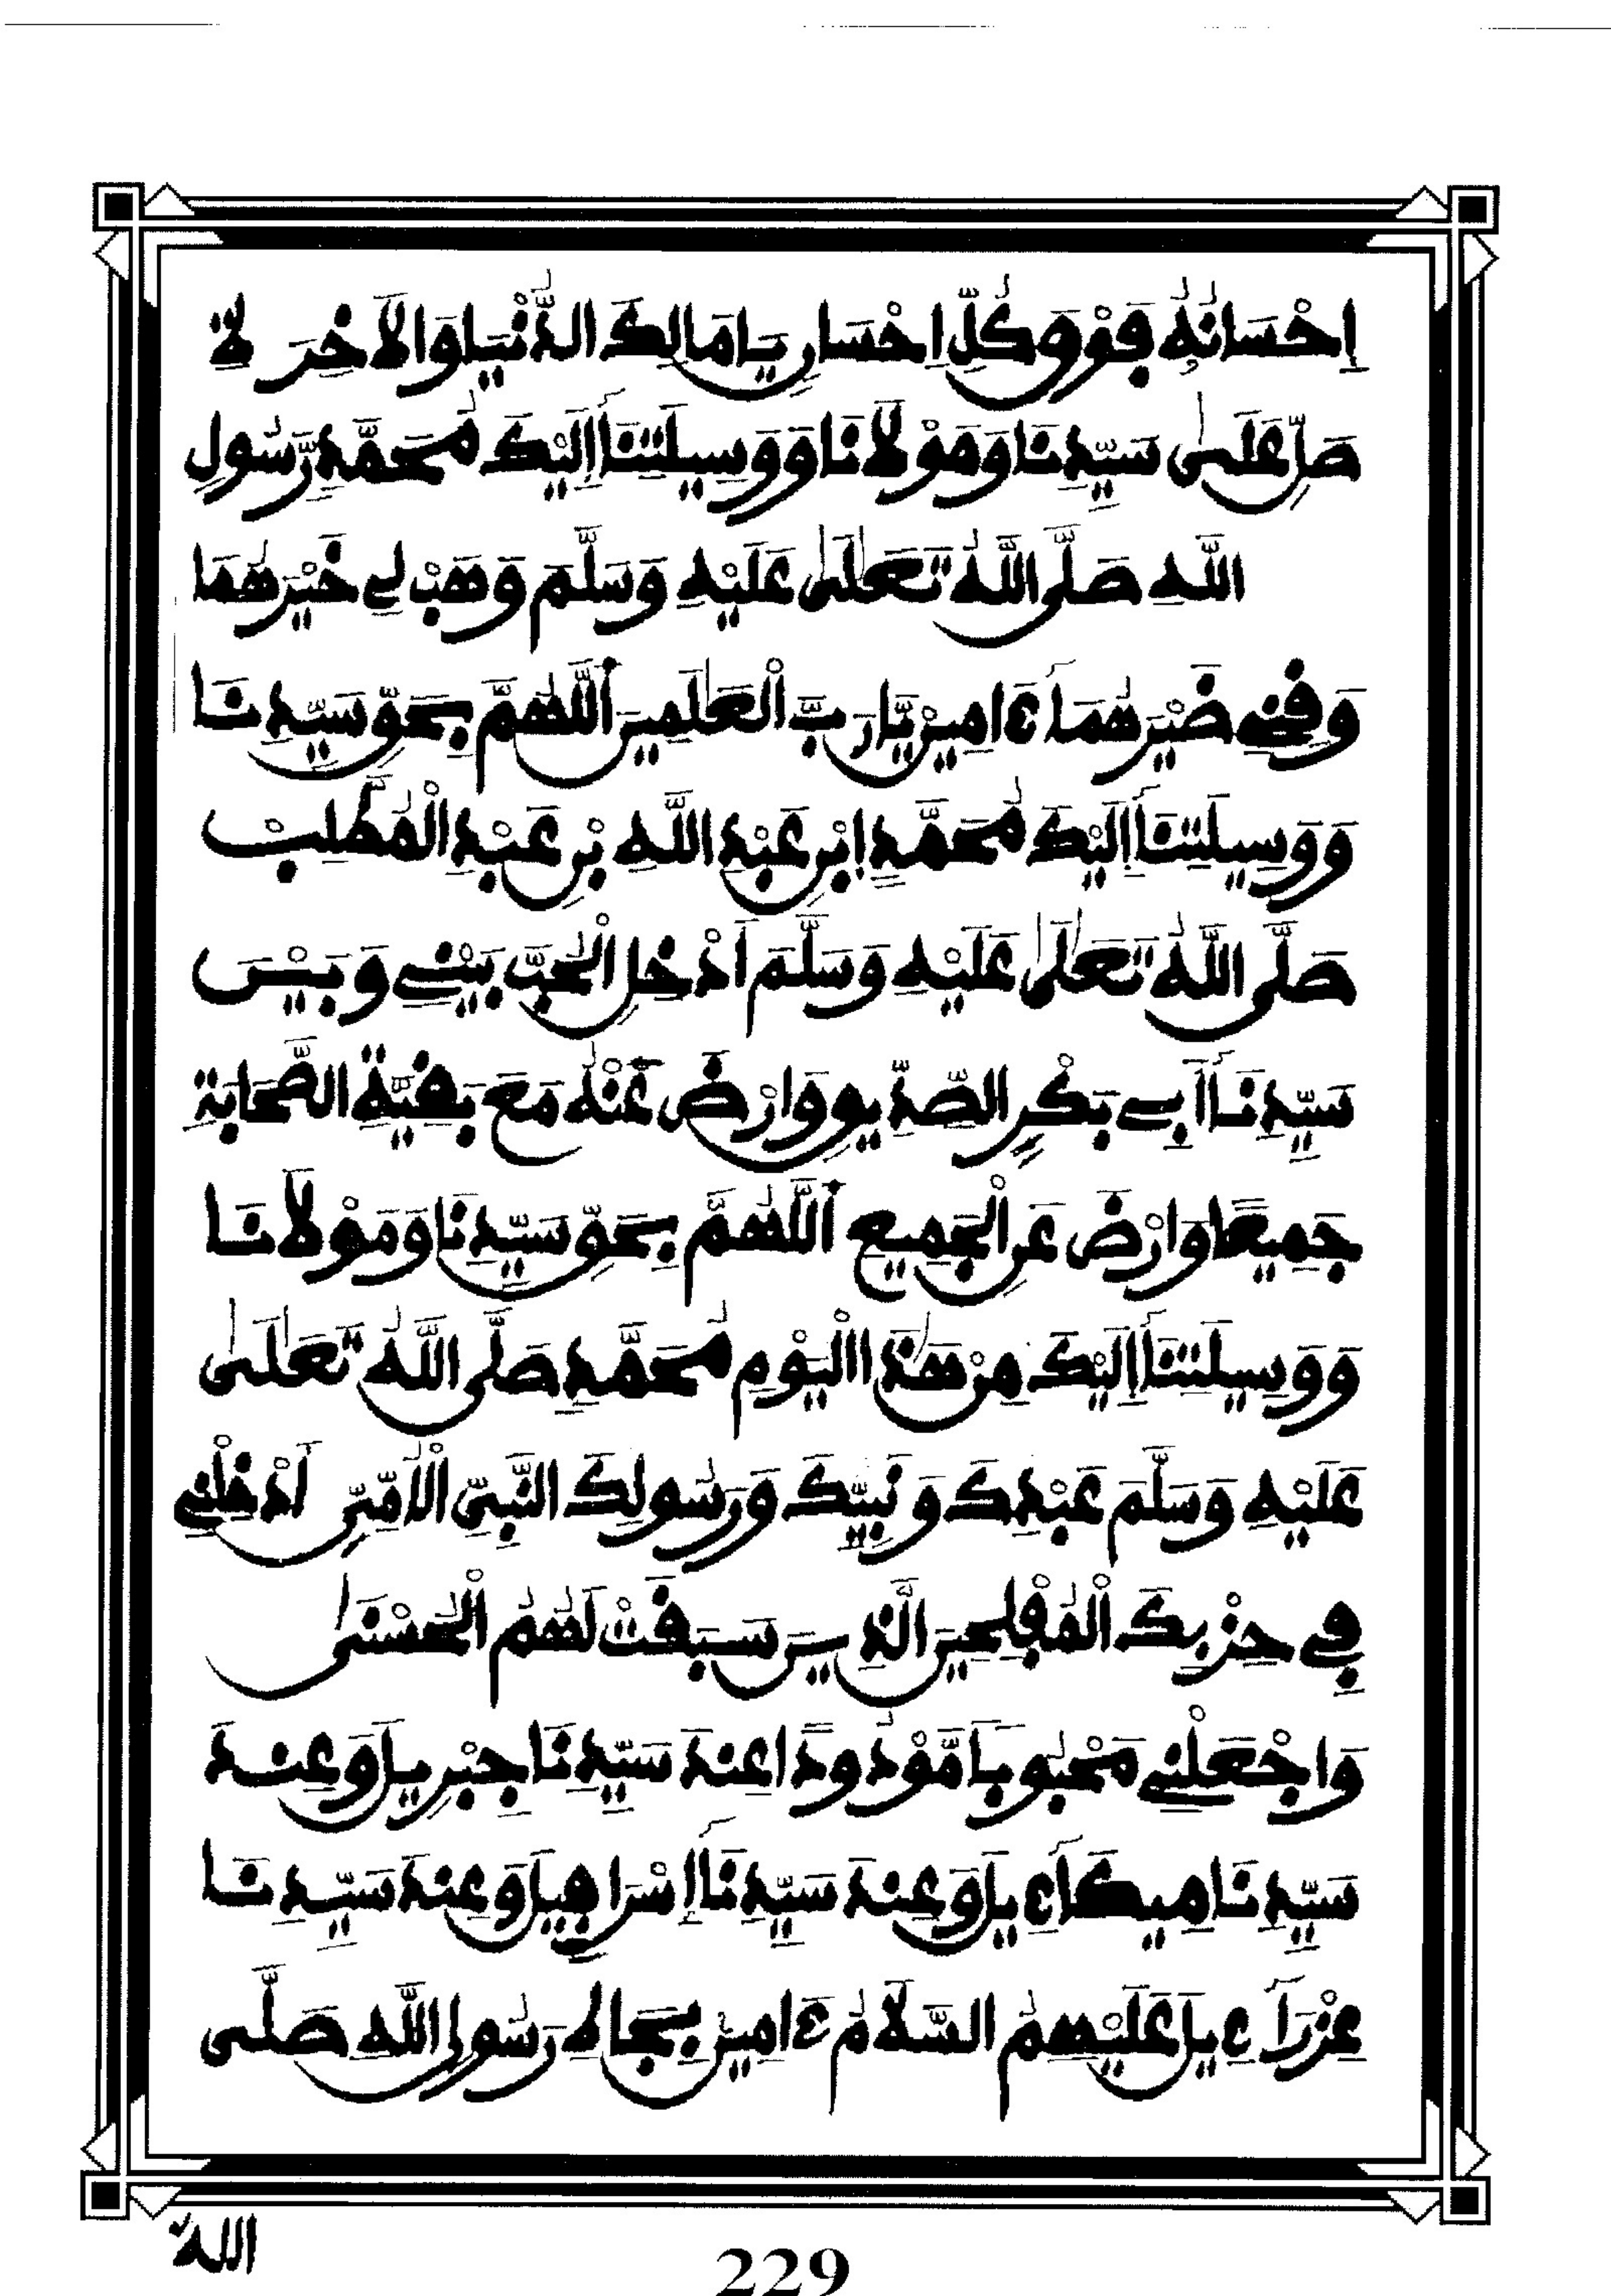 إِحْسَانُهُ فَوْقَ كُلِّ إِحْسَانٍ يَا مَالِكَ الدُّنْيَا وَالْآخِرَةِ
صَلِّ عَلَىٰ سَيِّدِنَا وَمَوْلَانَا وَوَسِيلَتِنَا إِلَيْكَ مُحَمَّدٍ رَّسُولِ
اللَّهِ صَلَّى اللَّهُ تَعَالَىٰ عَلَيْهِ وَسَلَّمَ وَهَبْ لِي خَيْرَهُمَا
وَقِنِي ضَيْرَهُمَا ءَامِينَ يَا رَبَّ الْعَٰلَمِينَ اَللَّهُمَّ بِحَقِّ سَيِّدِنَا
وَوَسِيلَتِنَا إِلَيْكَ مُحَمَّدٍ ابْنِ عَبْدِ اللَّهِ بْنِ عَبْدِ الْمُطَّلِبْ
صَلَّى اللَّهُ تَعَالَىٰ عَلَيْهِ وَسَلَّمَ أَدْخِلِ الْحُبَّ بَيْنِي وَبَيْنَ
سَيِّدِنَا أَبِي بَكْرٍ الصِّدِّيقِ وَارْضَ عَنْهُ مَعَ بَقِيَّةِ الصَّحَابَةِ
جَمِيعًا وَارْضَ عَنِ الْجَمِيعِ اَللَّهُمَّ بِحَقِّ سَيِّدِنَا وَمَوْلَانَا
وَوَسِيلَتِنَا إِلَيْكَ مِنْ هَٰذَا الْيَوْمِ مُحَمَّدٍ صَلَّى اللَّهُ تَعَالَىٰ
عَلَيْهِ وَسَلَّمَ عَبْدِكَ وَنَبِيِّكَ وَرَسُولِكَ النَّبِيِّ الْأُمِّيِّ أَدْخِلْنِي
فِي حِزْبِكَ الْمُفْلِحِينَ الَّذِينَ سَبَقَتْ لَهُمُ الْحُسْنَىٰ
وَاجْعَلْنِي مَحْبُوبًا مَّوْدُودًا عِندَ سَيِّدِنَا جِبْرِيلَ وَعِندَ
سَيِّدِنَا مِيكَآءِيلَ وَعِندَ سَيِّدِنَا إِسْرَافِيلَ وَعِندَ سَيِّدِنَا
عِزْرَآءِيلَ عَلَيْهِمُ السَّلَامُ ءَامِينَ بِجَاهِ رَسُولِ اللَّهِ صَلَّى
اللهُ
229